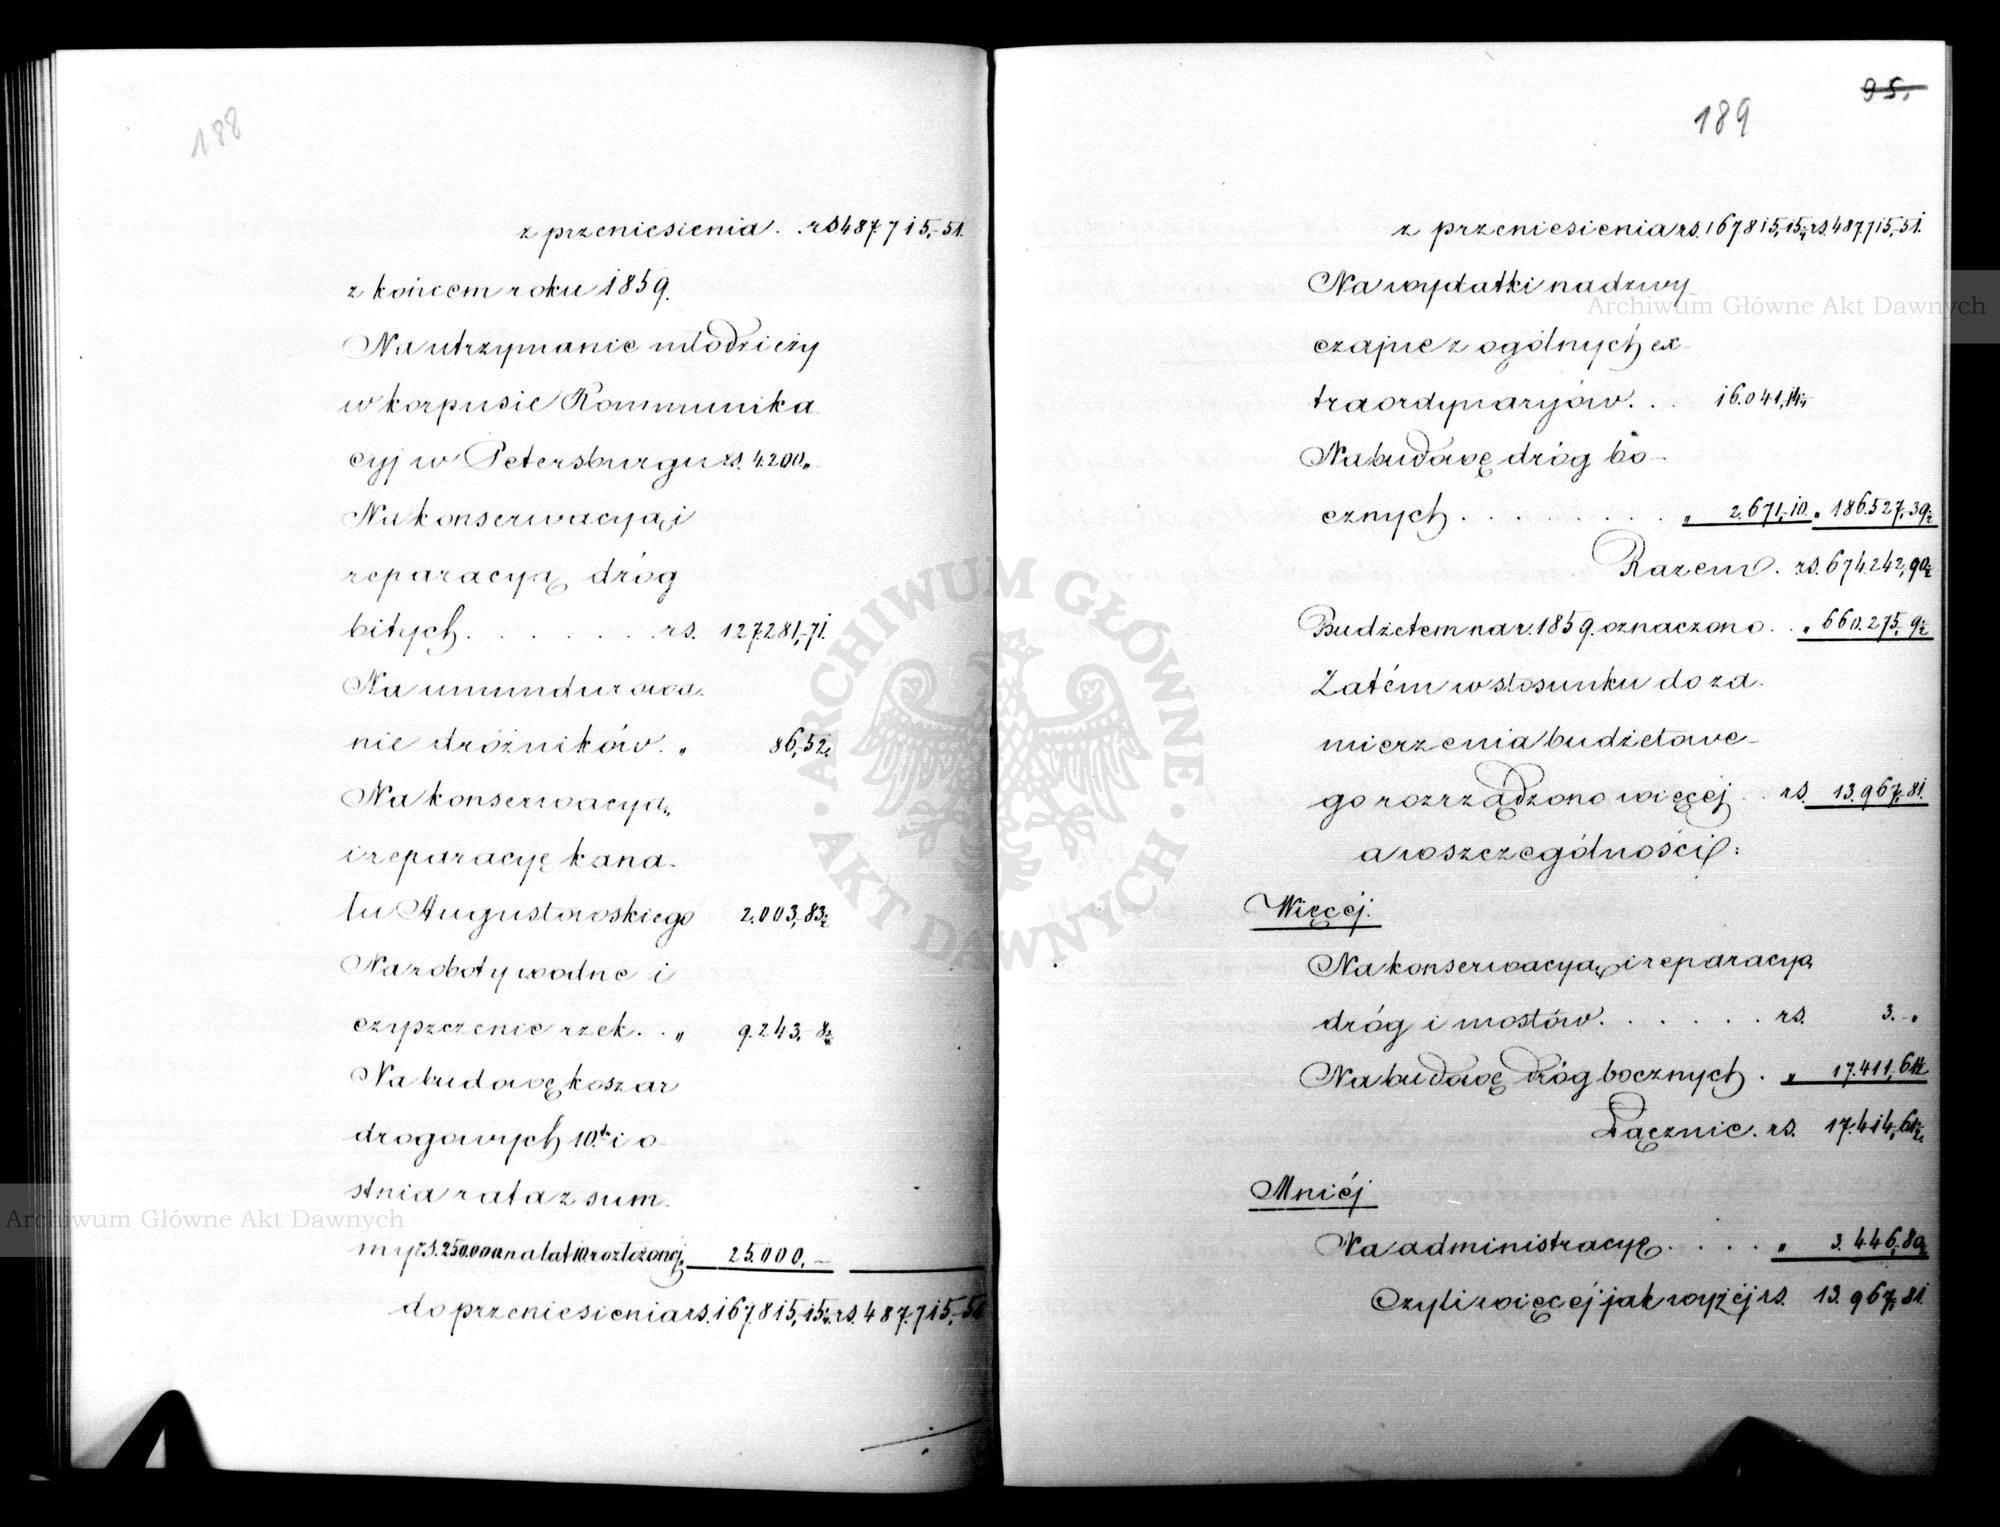 188
z przeniesienia . . rs 487.715,-51.
z końcem roku 1859.
Na utrzymanie młodzieży
w korpusie Kommunika
cyj w Petersburgu rs. 4.200 „
Na konserwacyą i
reparacyą dróg
bitych . . . . . . . rs. 127.281,-71.
Na umundurowa-
nie dróżników . „ 86,52.
Na konserwacyą
i reparacyę kana-
łu Augustowskiego 2.003,-83½
Na roboty wodne i
czyszczenie rzek . . „ 9.243,-8¾
Na budowę koszar
drogowych 10ta i o-
stnia rata z sum-
my rs. 250.000 na lat 10 rozłożonej „ 25.000,-
do przeniesienia rs. 167.815,-15¼ rs. 487.715,-51
95.
189
z przeniesienia rs. 167815,-15¼ rs. 487715,-51.
Na wydatki nadzwy-
czajne z ogólnych ex-
traordynaryjów . . . 16.041,14¼
Na budowę dróg bo-
cznych . . . . . . . . . „ 2.671,-10. „ 186.527,-39½
Razem . rs. 674.242,-90½
Budżetem na r. 1859. oznaczono . . „ 660.275,-9½
Zatém w stosunku do za-
mierzenia budżetowe-
go rozrządzono więcej . . rs. 13.967,-81.
a w szczególności:
Więcej.
Na konserwacyą i reparacyą
dróg i mostów . . . . . . rs. 3.-„
Na budowę dróg bocznych . „ 17.411,-61½
Łącznie . rs. 17.414,-61½
Mniéj
Na administracyę . . . . „ 3.446,-80½
Czyli więcej jak wyżéj rs. 13.967,-81.
Archiwum Główne Akt Dawnych
Archiwum Główne Akt Dawnych
· ARCHIWUM GŁÓWNE · AKT DAWNYCH